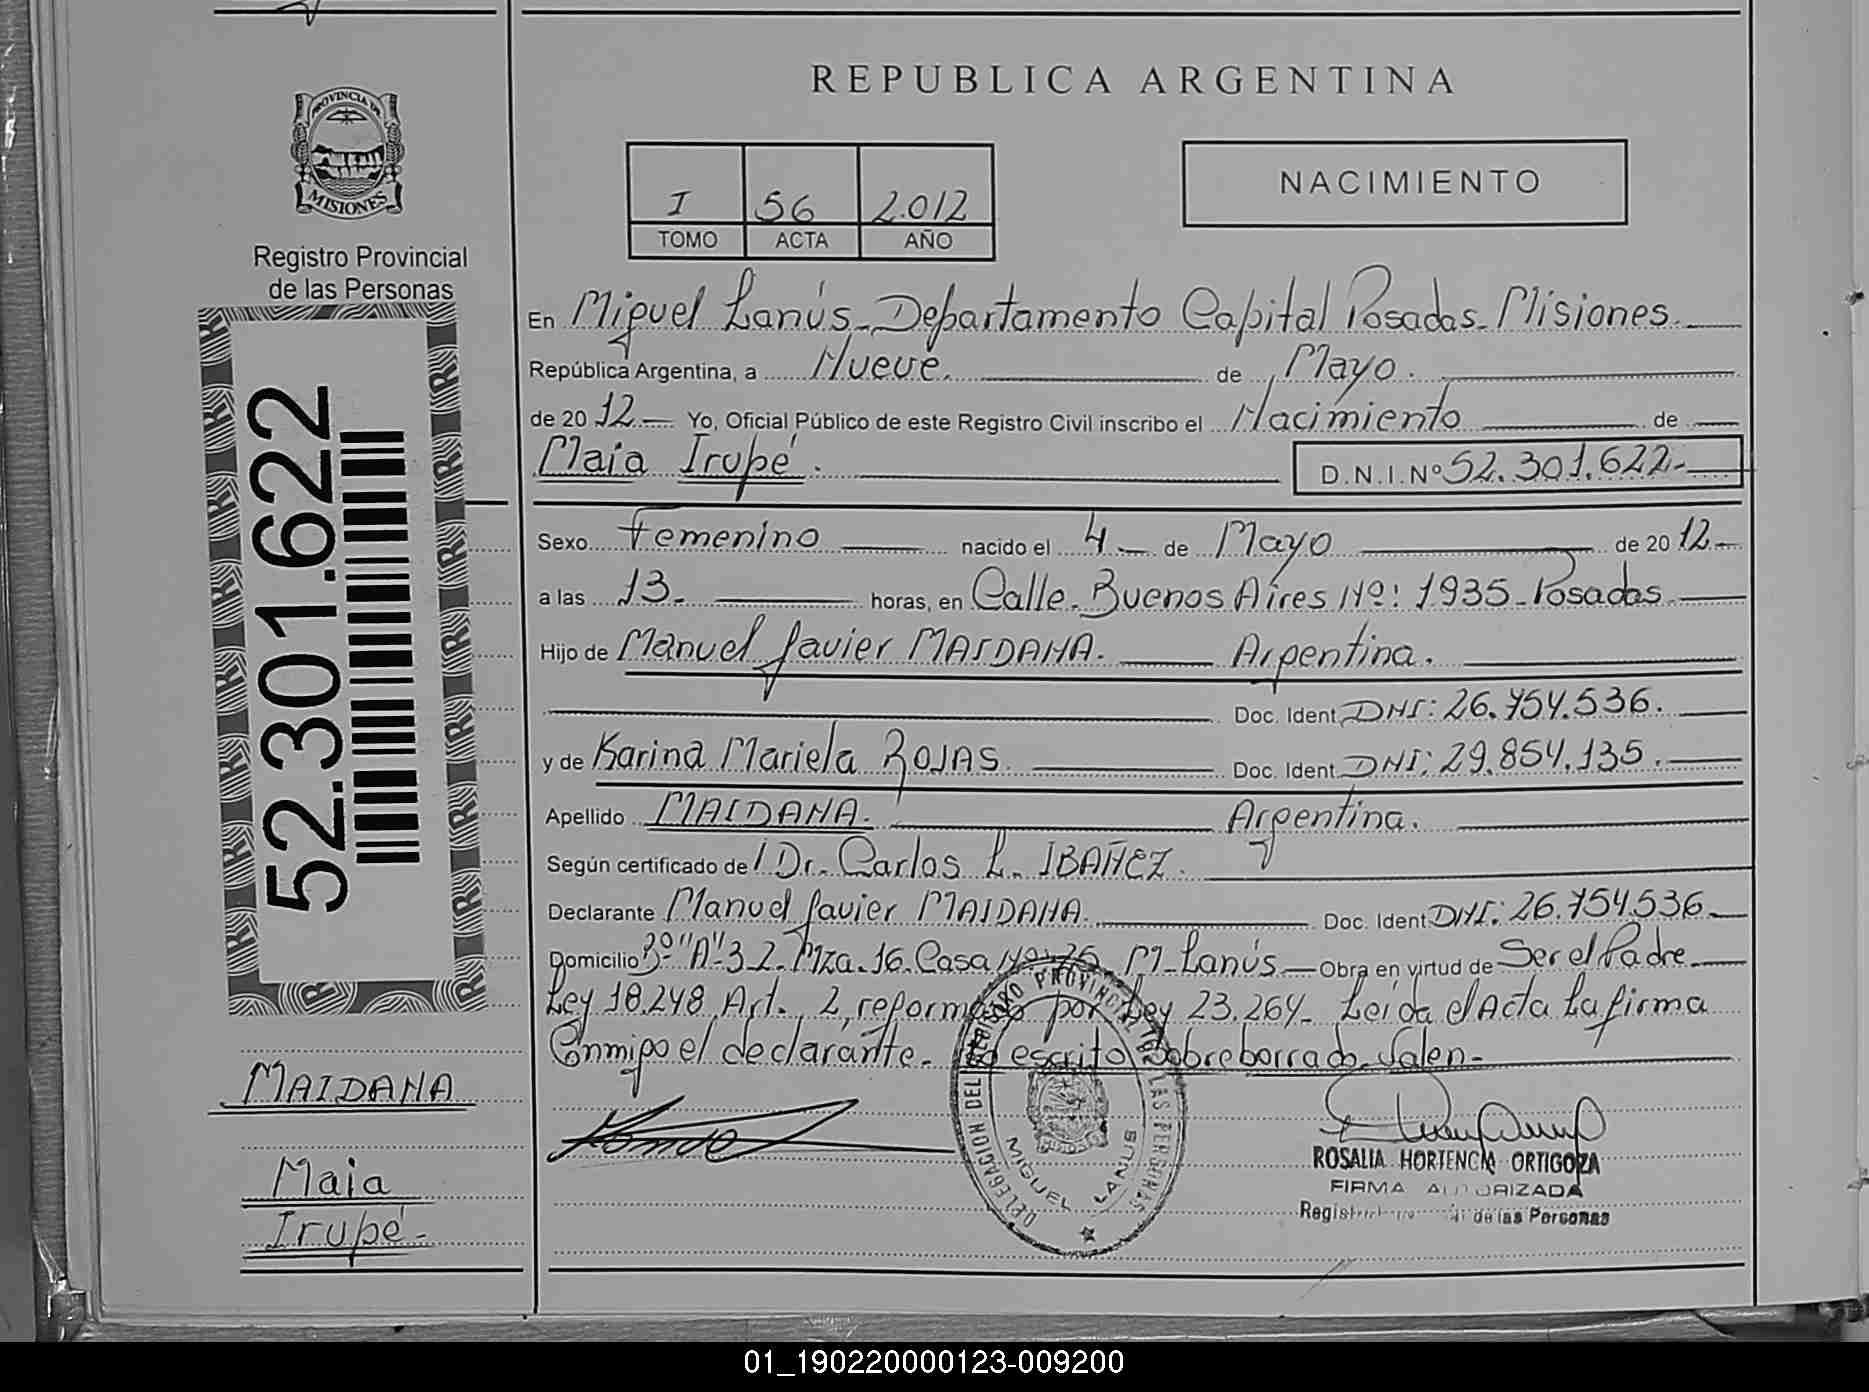 REPUBLICA ARGENTINA
PROVINCIA DE
MISIONES
Registro Provincial
de las Personas
I 56 2.012
TOMO ACTA AÑO
NACIMIENTO
52.301.622
En Miguel Lanús-Departamento Capital Posadas-Misiones.
República Argentina, a Nueve. de Mayo.
de 20 12.- Yo, Oficial Público de este Registro Civil inscribo el Nacimiento de
Maia Irupé.
D.N.I.Nº 52.301.622.-
Sexo Femenino nacido el 4.- de Mayo de 20 12.-
a las 13. horas, en Calle. Buenos Aires Nº: 1935-Posadas.
Hijo de Manuel Javier MAIDANA. Argentina.
Doc. Ident. DNI: 26.754.536.
y de Karina Mariela ROJAS. Doc. Ident. DNI: 29.854.135.
Apellido MAIDANA. Argentina.
Según certificado de Dr. Carlos L. IBAÑEZ.
Declarante Manuel Javier MAIDANA. Doc. Ident. DNI: 26.754.536.
Domicilio "A" 32. Mza. 16. Casa M-Lanús- Obra en virtud de Ser el Padre.
Ley 18.248 Art. 2, por Ley 23.264- Leída el Acta La firma
Conmigo el declarante.- escrito Sobreborrado-Valen-
MAIDANA
Maia
Irupé.-
DELEGACION DEL REGISTRO PROVINCIAL DE LAS PERSONAS
MIGUEL LANUS
ROSALIA HORTENCIA ORTIGOZA
FIRMA AUTORIZADA
de las Personas
01_190220000123-009200